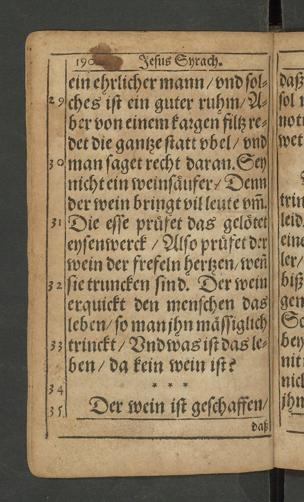 190 Jesus Syrach.
ein ehrlicher mann / vnd sol-
29 ches ist ein guter ruhm / A-
ber von einem kargen filtz re-
det die gantze statt vbel / vnd
30 man saget recht daran. Sey
nicht ein weinsäufer / Denn
der wein bringt vil leute vm̄.
31 Die esse prüfet das gelötet
eysenwerck / Also prüfet der
wein der frefeln hertzen / weñ
32 sie truncken sind. Der wein
erquickt den menschen das
leben / so man jhn mässiglich
33 trinckt / Vnd was ist das le-
ben / da kein wein ist?
34 * * *
35 Der wein ist geschaffen /
daß
daß
sol
noti
wet
trin
leid
eine
ler /
biß
gen
So
bey
nit
nic
jhn